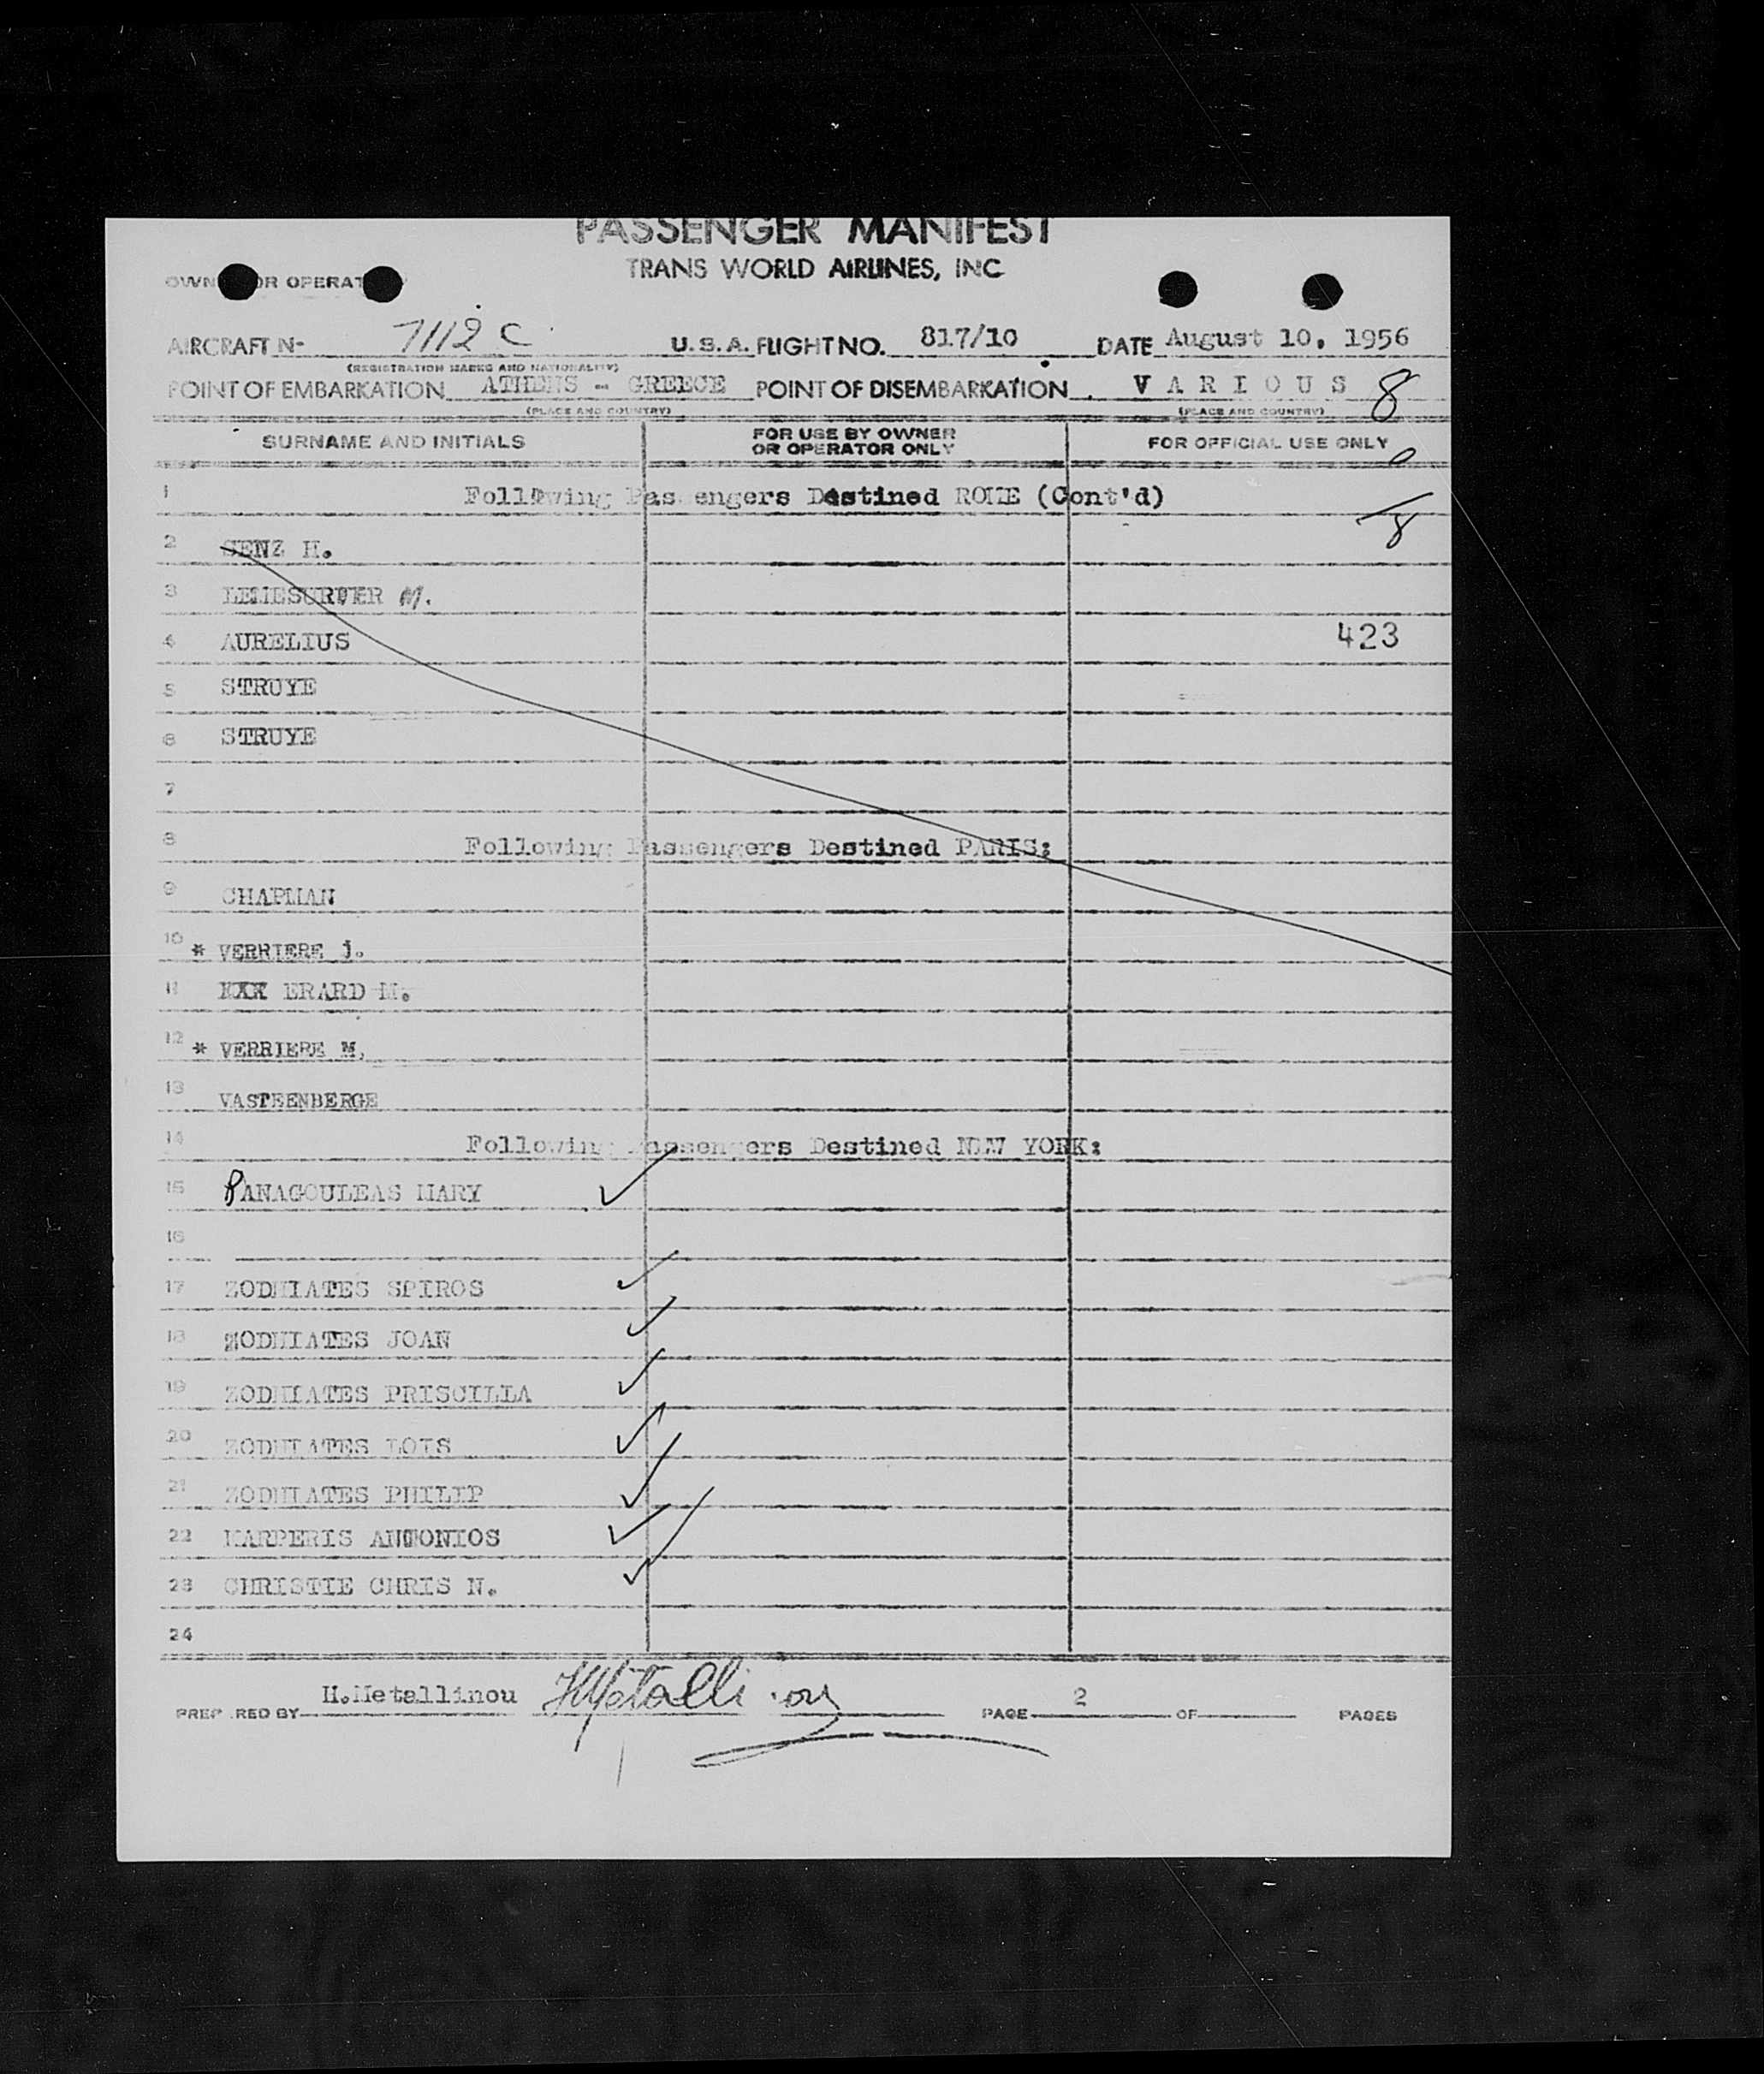 PASSENGER MANIFEST
TRANS WORLD AIRLINES, INC
OWN OR OPERAT
AIRCRAFT N- 7112 C U.S.A. FLIGHT NO. 817/10 DATE August 10, 1956
(REGISTRATION MARKS AND NATIONALITY)
POINT OF EMBARKATION ATHENS - GREECE POINT OF DISEMBARKATION V A R I O U S 8
(PLACE AND COUNTRY) (PLACE AND COUNTRY)
SURNAME AND INITIALS FOR USE BY OWNER OR OPERATOR ONLY FOR OFFICIAL USE ONLY 0
1 Following Passengers Destined ROME (Cont'd)
8
2 SENZ H.
3 LEMESURIER M.
4 AURELIUS 423
5 STRUYE
6 STRUYE
7
8 Following Passengers Destined PARIS:
9 CHAPMAN
10 * VERRIERE j.
11 XXX ERARD M.
12 * VERRIERE M.
13 VASTEENBERGE
14 Following Passengers Destined NEW YORK:
15 PANAGOULEAS MARY
16
17 ZODHIATES SPIROS
18 ZODHIATES JOAN
19 ZODHIATES PRISCILLA
20 ZODHIATES LOIS
21 ZODHIATES PHILIP
22 MARPERIS ANTONIOS
23 CHRISTIE CHRIS N.
24
PREP RED BY H.Metallinou HMetallinou PAGE 2 OF PAGES